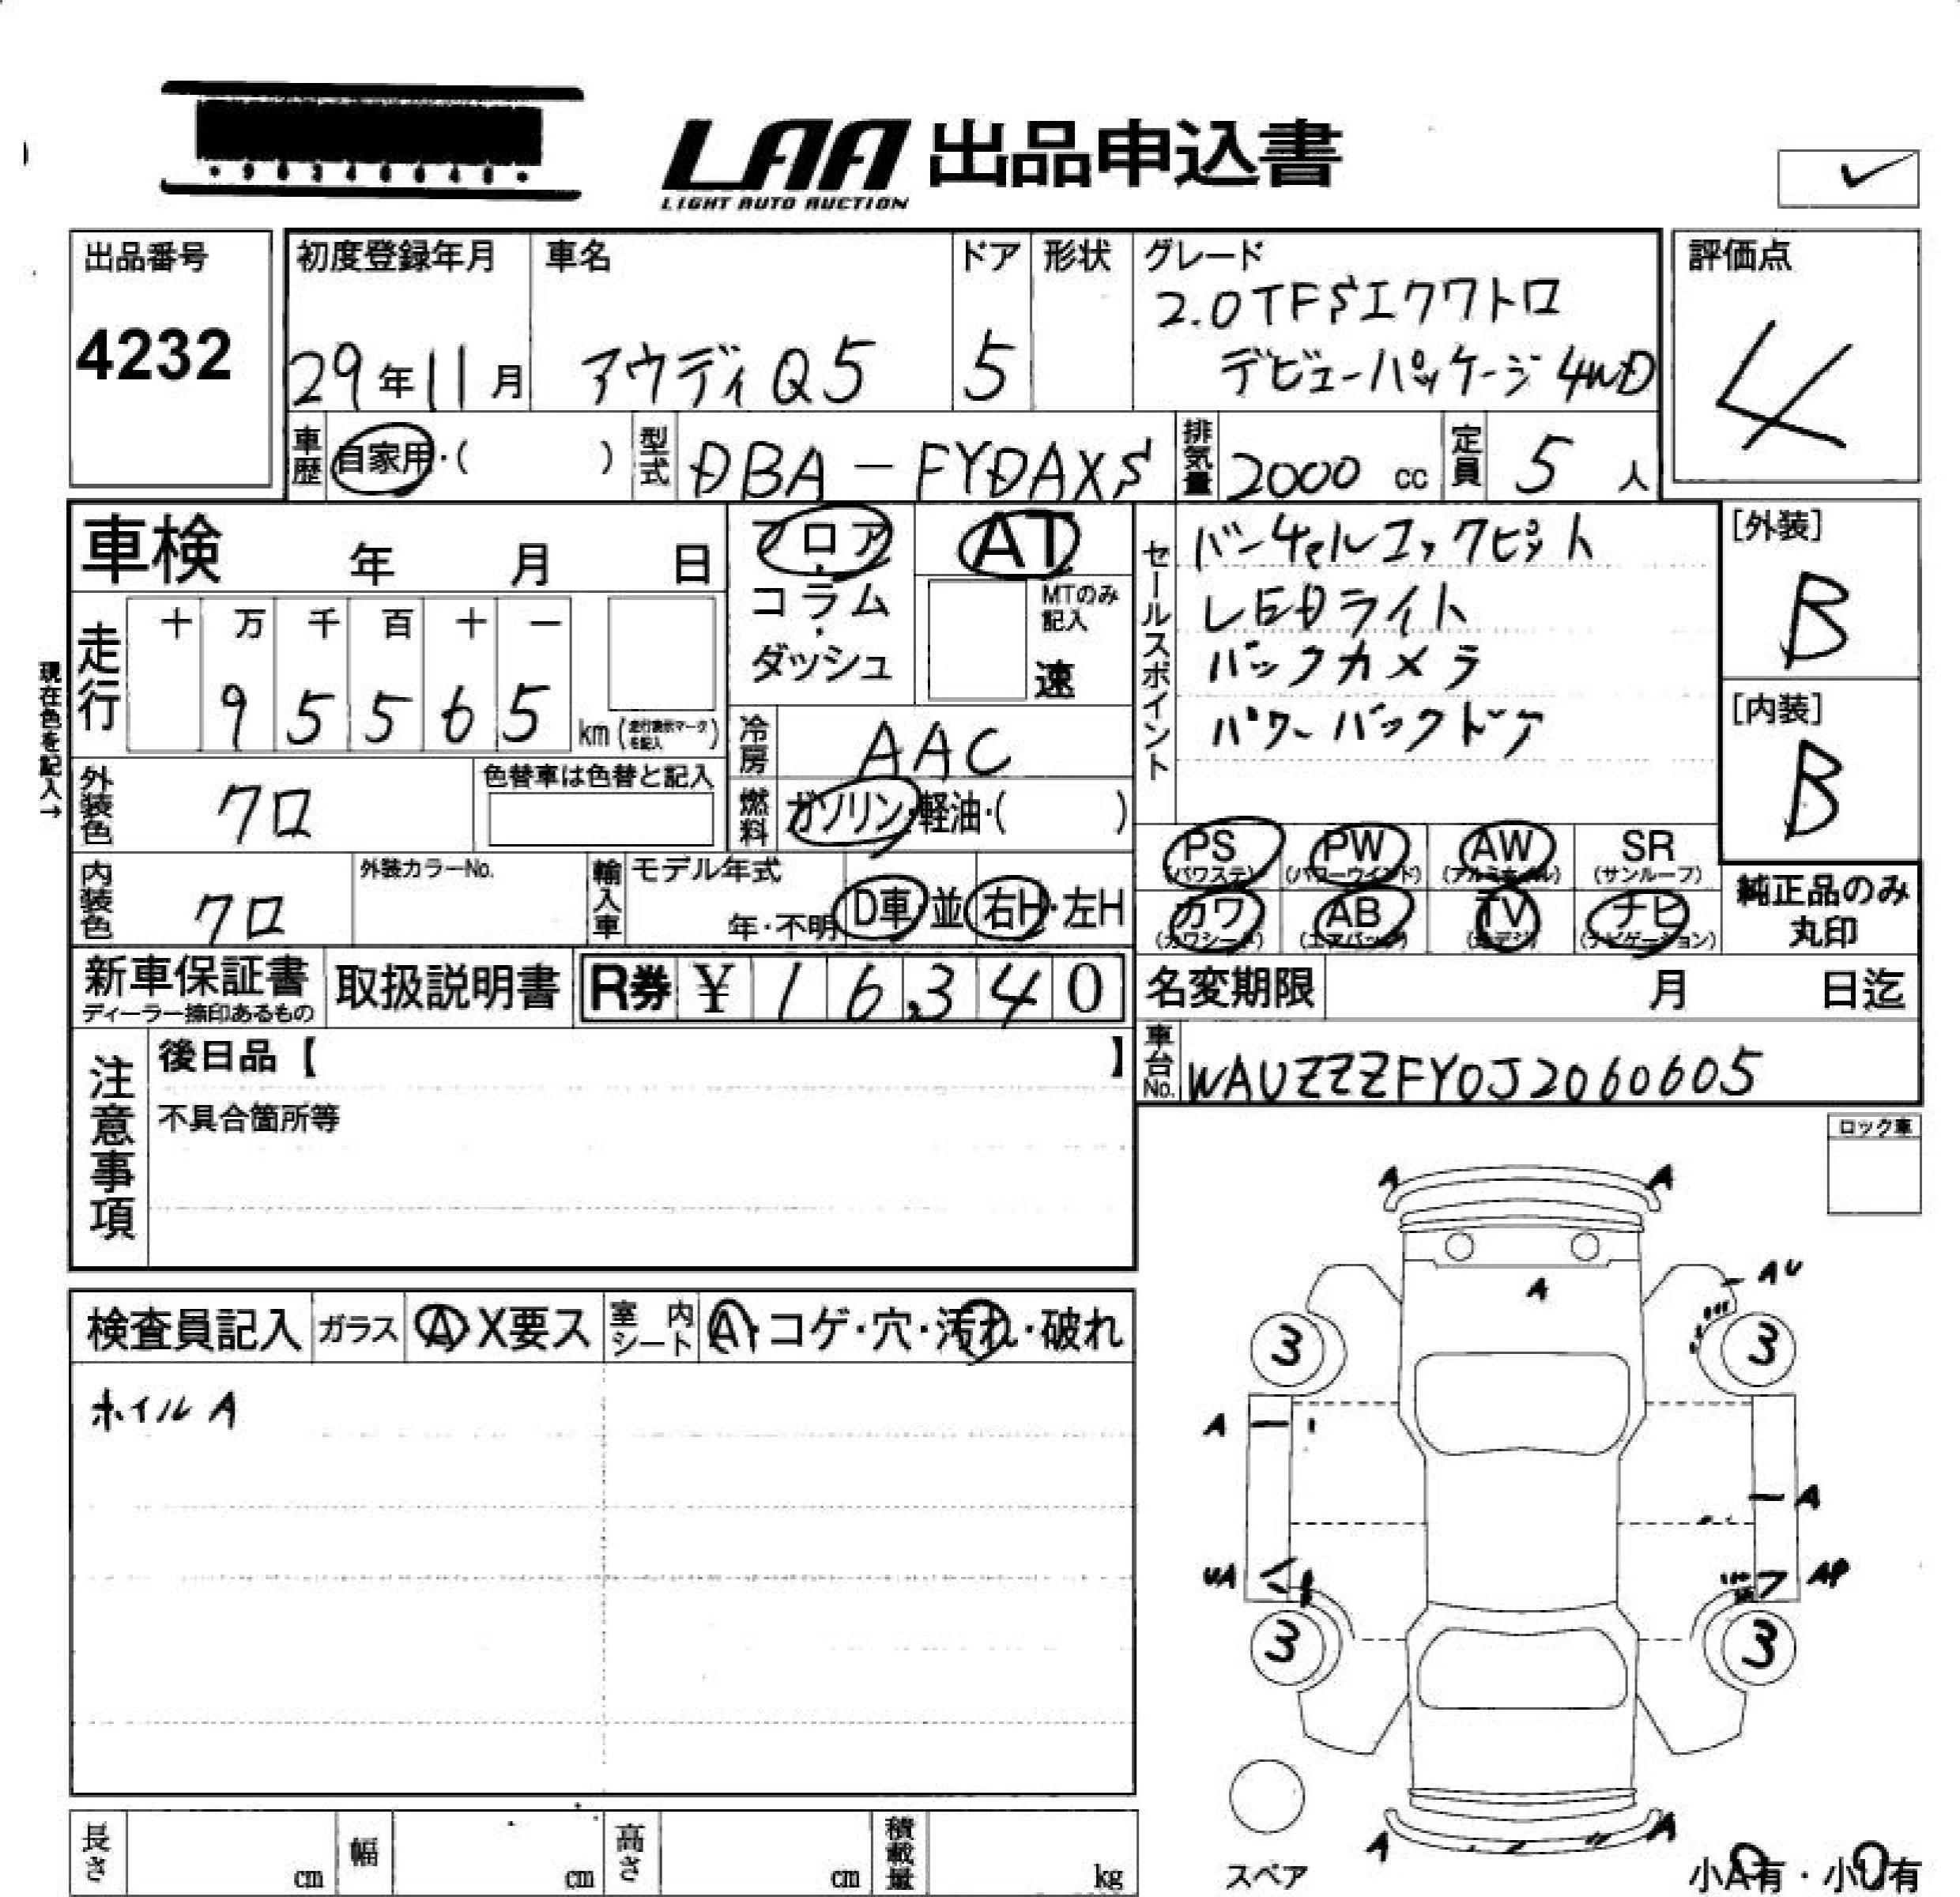 LAA 出品申込書
LIGHT AUTO AUCTION
出品番号
4232
初度登録年月
29年11月
車名
アウディQ5
ドア
5
形状
グレード
2.0TFSIクワトロ
デビューパッケージ 4WD
評価点
4
車歴 自家用・( )
型式 DBA-FYDAXS
排気量 2000 cc
定員 5 人
車検 年 月 日
フロア・コラム・ダッシュ
AT
MTのみ記入
速
セールスポイント
バーチャルコックピット
LEDライト
バックカメラ
パワーバックドア
[外装]
B
[内装]
B
現在色を記入→
走行
十 万 千 百 十 一
9 5 5 6 5 km (走行表示マークを記入)
冷房 AAC
外装色 クロ
色替車は色替と記入
燃料 ガソリン・軽油・( )
PS (パワステ) PW (パワーウインド) AW (アルミホイル) SR (サンルーフ)
カワ (カワシート) AB (エアバッグ) TV (地デジ) ナビ (ナビゲーション)
純正品のみ丸印
内装色 クロ
外装カラーNo.
輸入車 モデル年式
年・不明
D車 並 右H・左H
新車保証書
ディーラー捺印あるもの
取扱説明書
R券 ¥ 16,340
名変期限 月 日迄
車台No. WAUZZZFY0J2060605
注意事項
後日品【 】
不具合箇所等
ロック車
検査員記入 ガラス A・X要ス 室内シート A・コゲ・穴・汚れ・破れ
ホイルA
A A
A
AU
3 3
A
A
UA AP
3 3
A A
スペア
小A有・小U有
長さ cm 幅 cm 高さ cm 積載量 kg